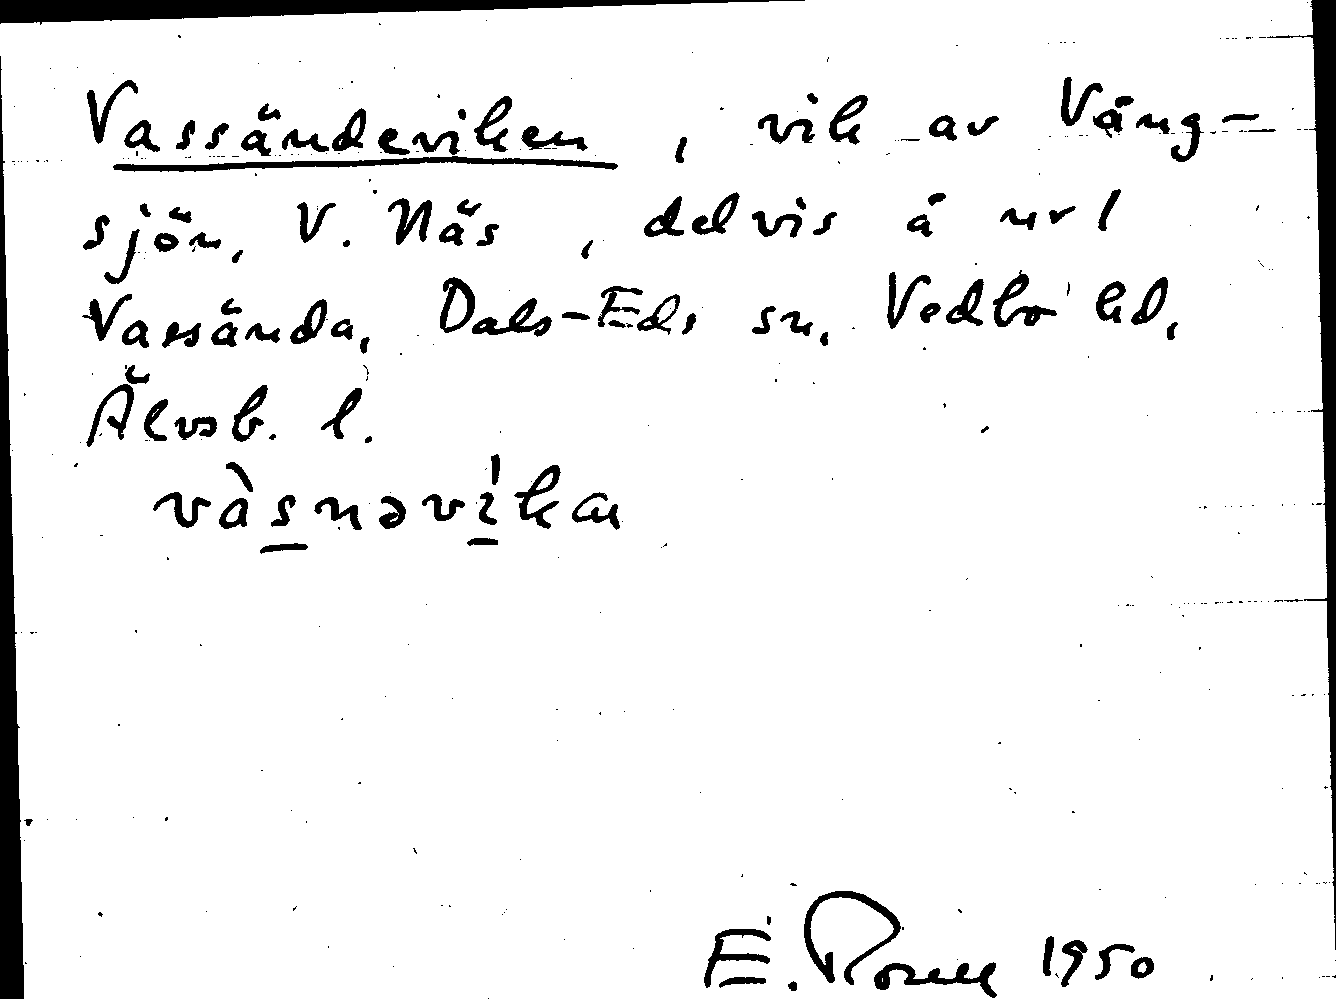 Vassändeviken, vik av Väng-
sjön, V. Näs, delvis å url
Vassända, Dals-Eds sn, Vedbo hd,
Älvsb. l.
vàsnəvìkan
E. 1950